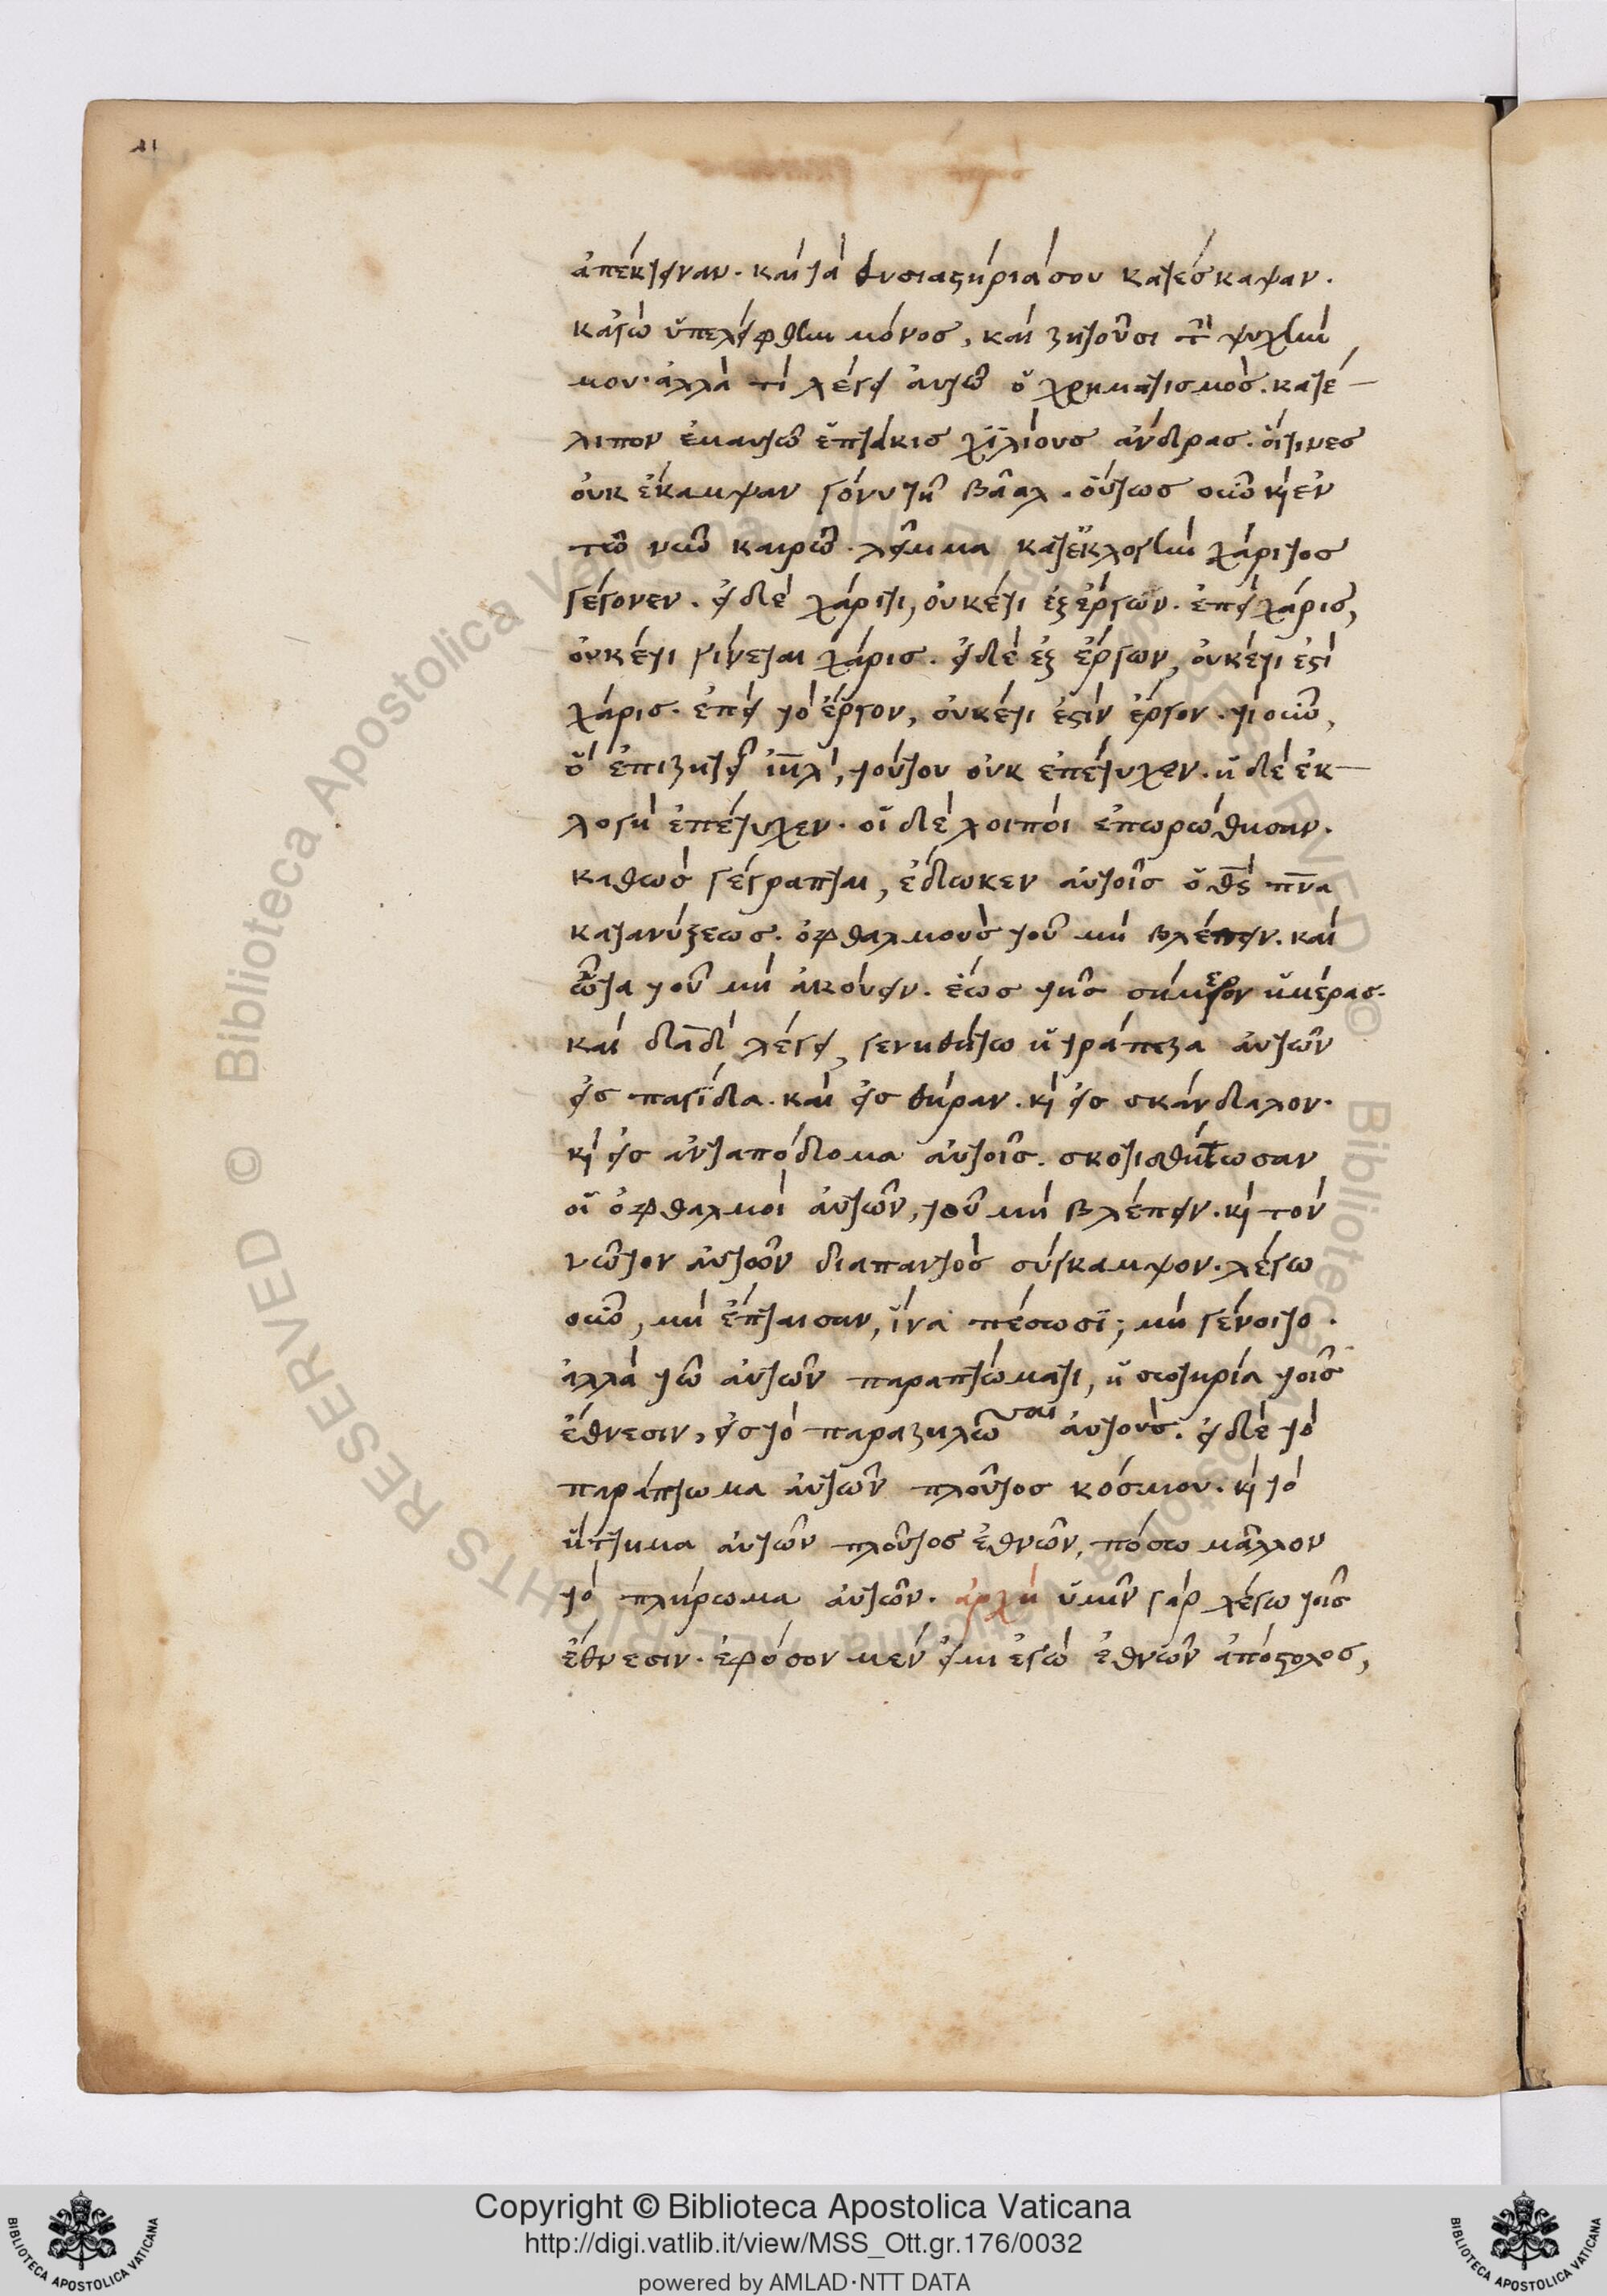 ἀπέκτειναν. καὶ τὰ θυσιαστήριά σου κατέσκαψαν.
κἀγὼ ὑπελείφθην μόνος, καὶ ζητοῦσι τὴν ψυχήν
μου. ἀλλὰ τί λέγει αὐτῶ ὁ χρηματισμός. κατέ-
λιπον ἐμαυτῶ ἑπτάκις χϊλίους ἄνδρας. οἵτινες
οὐκ ἔκαμψαν γόνυ τῆ βάαλ. οὕτως οὖν κὶ ἐν
τῶ νῦν καιρῶ. λεῖμμα κατ' ἐκλογὴν χάριτος
γέγονεν. εἰ δὲ χάριτι, οὐκέτι ἐξ ἔργων. ἐπεὶ χάρις,
οὐκέτι γίνεται χάρις. εἰ δὲ ἐξ ἔργων, οὐκέτι ἐστὶ
χάρις. ἐπεὶ τὸ ἔργον, οὐκέτι ἐστὶν ἔργον. τί οὖν,
ὃ ἐπιζητεῖ ἰηλ, τούτου οὐκ ἐπέτυχεν. ἡ δὲ ἐκ-
λογὴ ἐπέτυχεν. οἱ δὲ λοιποὶ ἐπωρώθησαν.
καθὼς γέγραπται, ἔδωκεν αὐτοῖς ὁ θς πνα
κατανύξεως. ὀφθαλμοὺς τοῦ μὴ βλέπειν. καὶ
ὦτα τοῦ μὴ ἀκούειν. ἕως τῆς σήμερον ἡμέρας.
καὶ δαδ λέγει, γενηθήτω ἡ τράπεζα αὐτῶν
εἰς παγίδα. καὶ εἰς θήραν. κὶ εἰς σκάνδαλον.
κὶ εἰς ἀνταπόδομα αὐτοῖς. σκοτισθήτωσαν
οἱ ὀφθαλμοὶ αὐτῶν, τοῦ μὴ βλέπειν. κὶ τὸν
νῶτον αὐτῶν διαπαντὸς σύγκαμψον. λέγω
οὖν, μὴ ἔπταισαν, ἵνα πέσωσϊ; μὴ γένοιτο.
ἀλλὰ τῶ αὐτῶν παραπτώματι, ἡ σωτηρία τοῖς
ἔθνεσιν, εἰς τὸ παραζηλῶσαι αὐτούς. εἰ δὲ τὸ
παράπτωμα αὐτῶν πλοῦτος κόσμου. κὶ τὸ
ἥττημα αὐτῶν πλοῦτος ἐθνῶν, πόσω μᾶλλον
τὸ πλήρωμα αὐτῶν. ἀρχὴ ὑμῖν γὰρ λέγω τοῖς
ἔθνεσιν. ἐφόσον μέν εἰμι ἐγὼ ἐθνῶν ἀπόστολος,
Copyright © Biblioteca Apostolica Vaticana
http://digi.vatlib.it/view/MSS_Ott.gr.176/0032
powered by AMLAD·NTT DATA
BIBLIOTECA APOSTOLICA VATICANA
BIBLIOTECA APOSTOLICA VATICANA